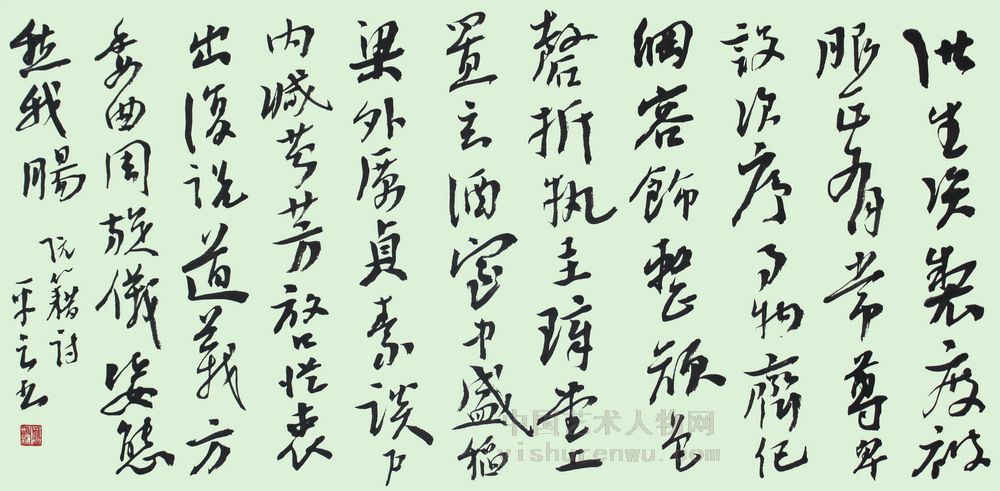 洪生資製度被
服正有常尊卑
設次序事物齊纪
綱容飾整顔色
磬折執圭璋堂上
置玄酒室中盛稻
梁外厲貞素談户
内滅芬芳放口從衷
出復説道義方
委曲周旋儀姿態
愁我腸
阮籍詩
书
中国艺术人物网
yishurenwu.com